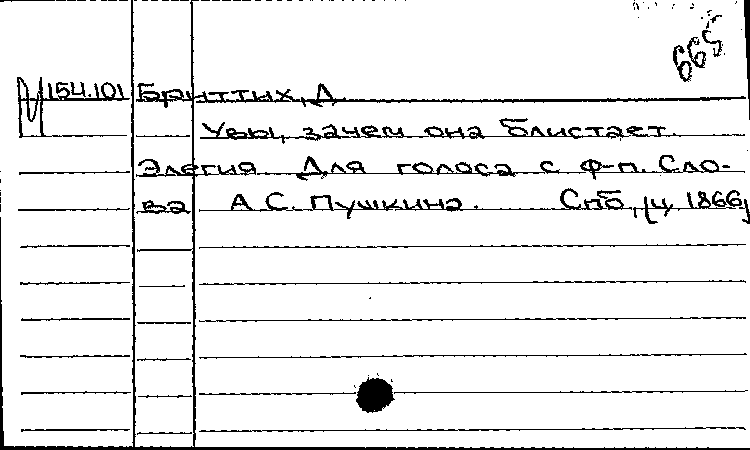 665
М 154.101 Бриттих, Д.
Увы, зачем она блистает.
Элегия Для голоса с ф-п. Сло-
ва А С. Пушкина. Спб, [ц. 1866]